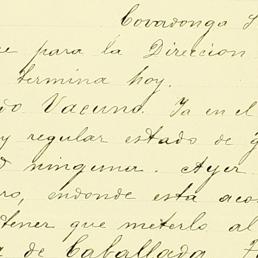 Covadonga S
e para la Direccion
termina hoy.
do Vacuno. Ya en el
y regular estado de g
ninguna. Ayer
ro, endonde esta aco
tener que meterlo al
de Caballada